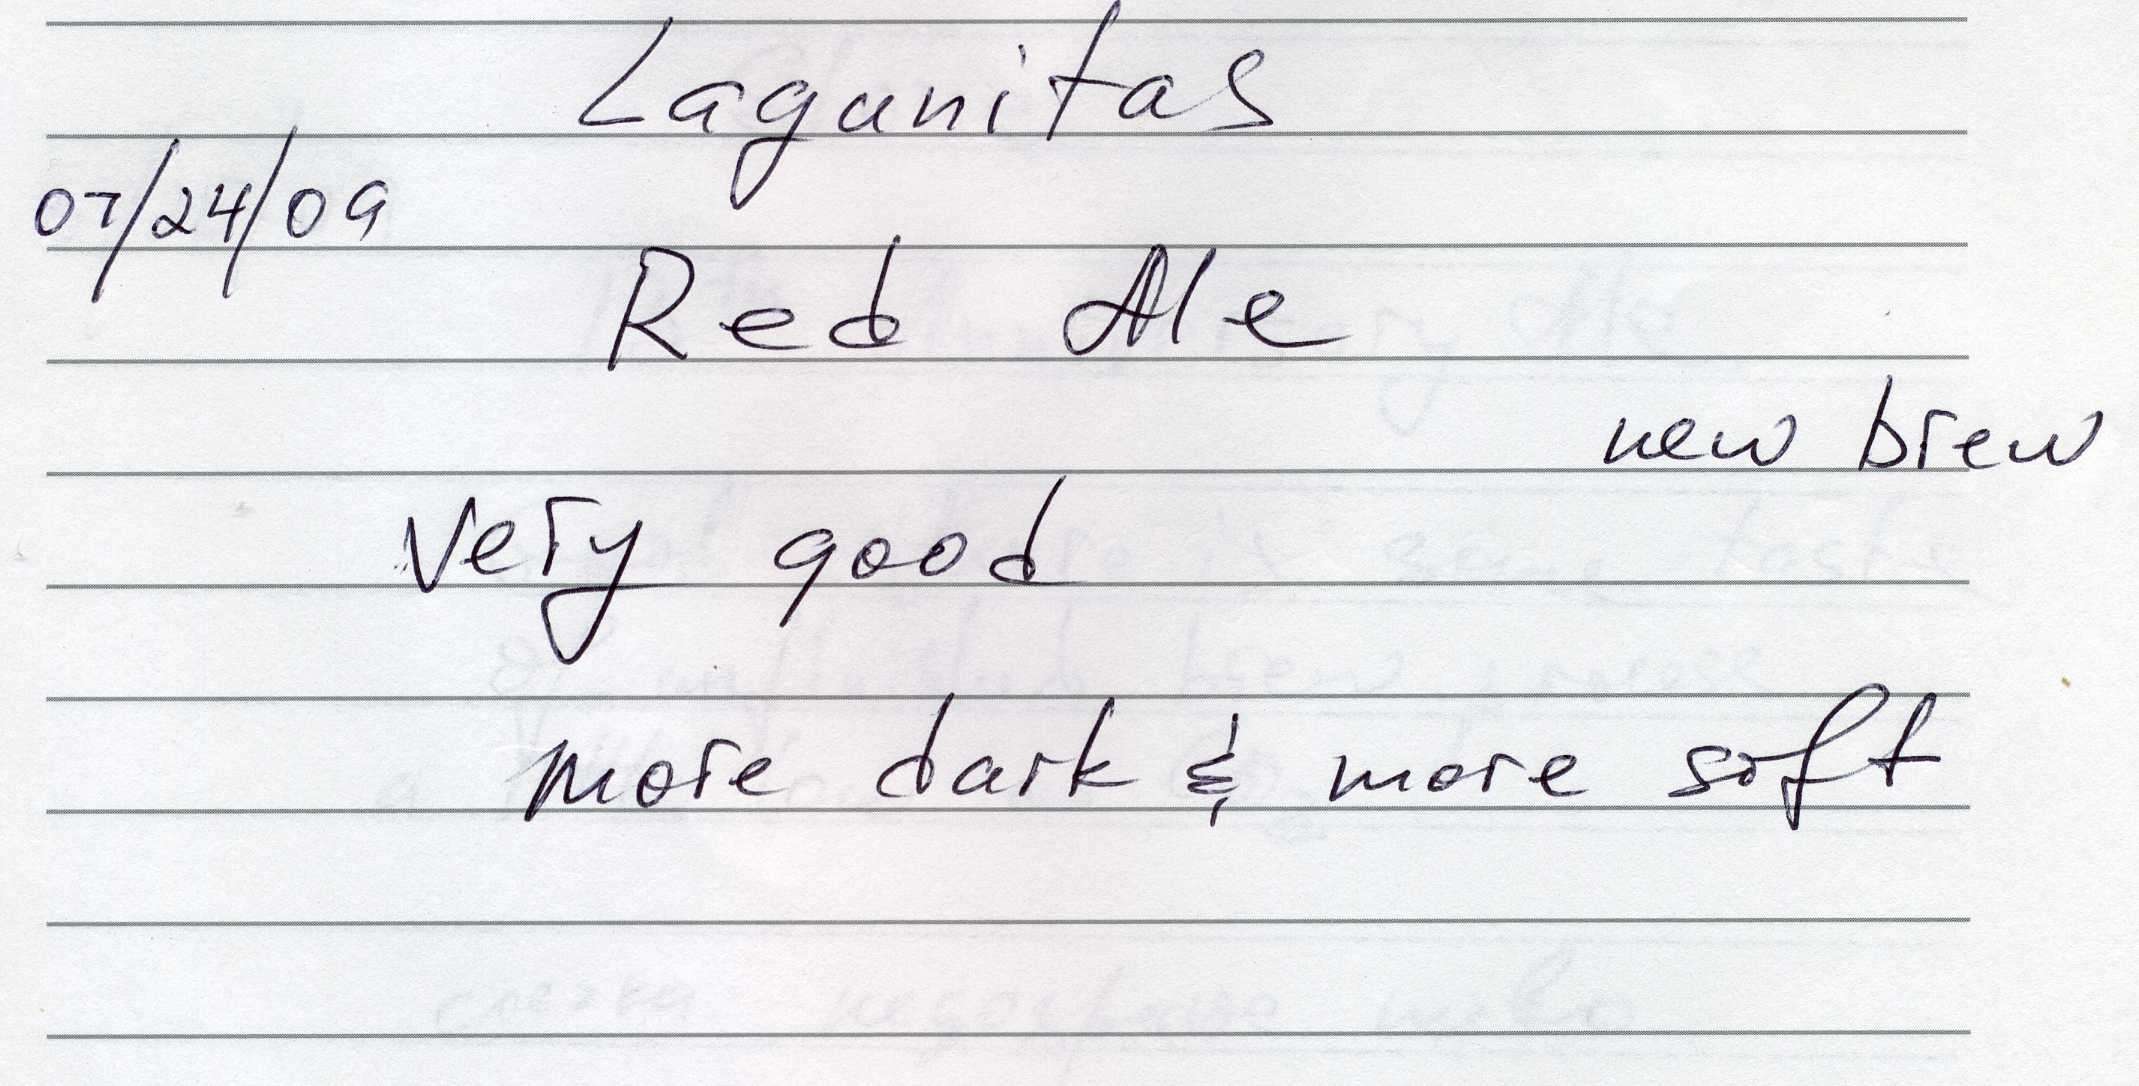 Lagunitas
07/24/09
Red Ale
new brew
very good
more dark & more soft